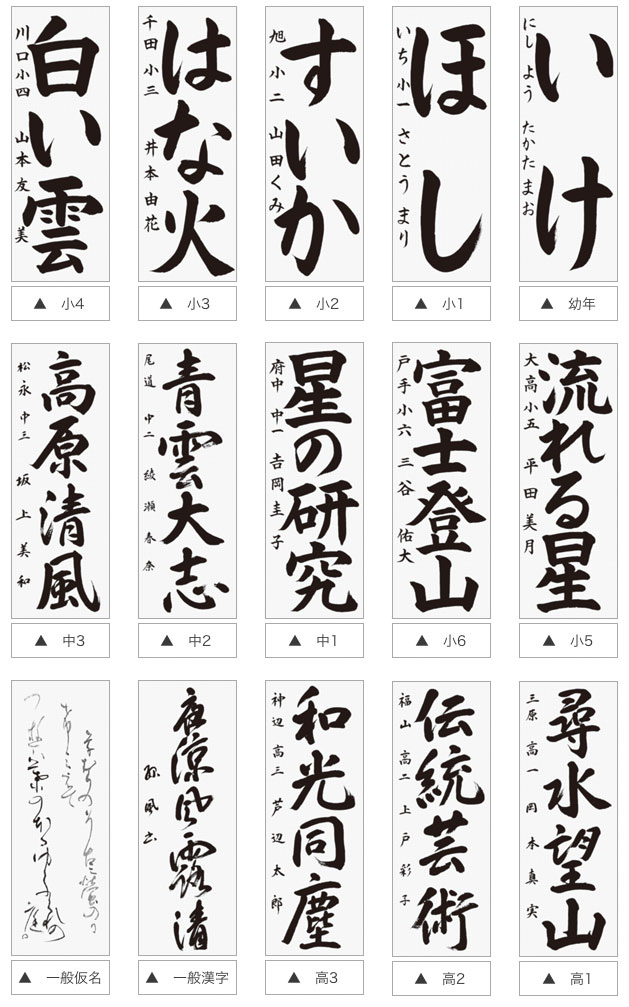 いけ
にし よう たかた まお
▲ 幼年
ほし
いち 小一 さとう まり
▲ 小1
すいか
旭 小二 山田 くみ
▲ 小2
はな火
千田 小三 井本 由花
▲ 小3
白い雲
川口 小四 山本 友美
▲ 小4
流れる星
大高 小五 平田 美月
▲ 小5
富士登山
戸手 小六 三谷 佑大
▲ 小6
星の研究
府中 中一 吉岡 圭子
▲ 中1
青雲大志
尾道 中二 綾瀬 春奈
▲ 中2
高原清風
松永 中三 坂上 美和
▲ 中3
尋水望山
三原 高一 岡本 真実
▲ 高1
伝統芸術
福山 高二 上戸 彩子
▲ 高2
和光同塵
神辺 高三 芦辺 太郎
▲ 高3
夜涼風露清
▲ 一般漢字
▲ 一般仮名